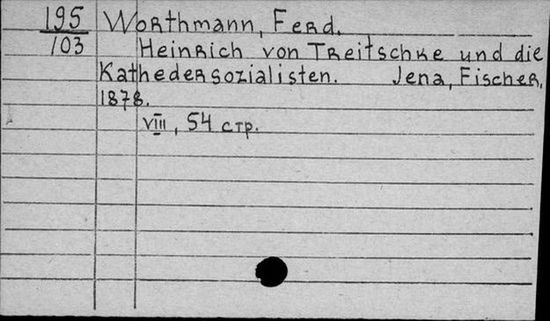 195 Worthmann, Ferd.
103 Heinrich von Treitschke und die
Kathedersozialisten. Jena, Fischer,
1878.
VIII, 54 стр.